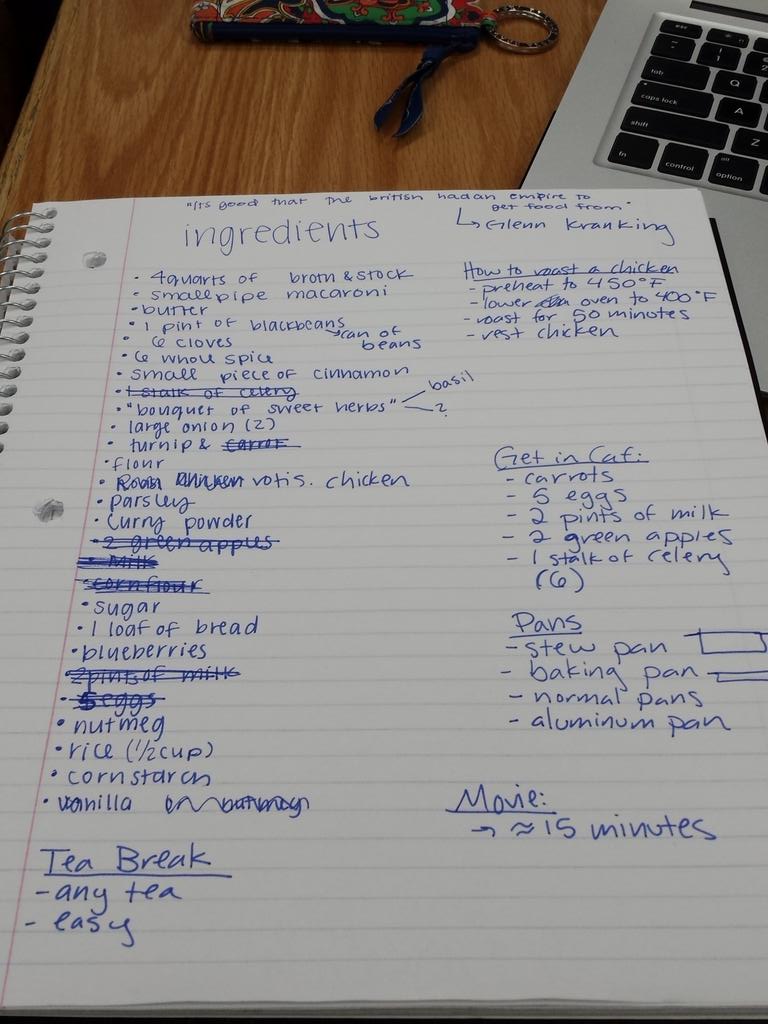 "its good that the british had an empire to
get food from"
↳ Glenn Kranking
ingredients
• 4 quarts of broth & stock
• small pipe macaroni
• butter
• 1 pint of blackbeans → can of beans
• 6 cloves
• 6 whole spice
• small piece of cinnamon
• 1 stalk of celery
• "bouquet of sweet herbs" basil
?
• large onion (2)
• turnip & carrot
• flour
• rotis. chicken
• parsley
• curry powder
• 2 green apples
• milk
• cornflour
• sugar
• 1 loaf of bread
• blueberries
• 2 pints of milk
• 5 eggs
• nutmeg
• rice (1/2 cup)
• cornstarch
• vanilla
Tea Break
- any tea
- easy
How to roast a chicken
- preheat to 450°F
- lower oven to 400°F
- roast for 50 minutes
- rest chicken
Get in Caf:
- carrots
- 5 eggs
- 2 pints of milk
- 2 green apples
- 1 stalk of celery
(6)
Pans
- stew pan
- baking pan
- normal pans
- aluminum pan
Movie:
→ ≈ 15 minutes
esc
~
!
1
2
tab
Q
caps lock
A
shift
Z
fn
control
alt
option